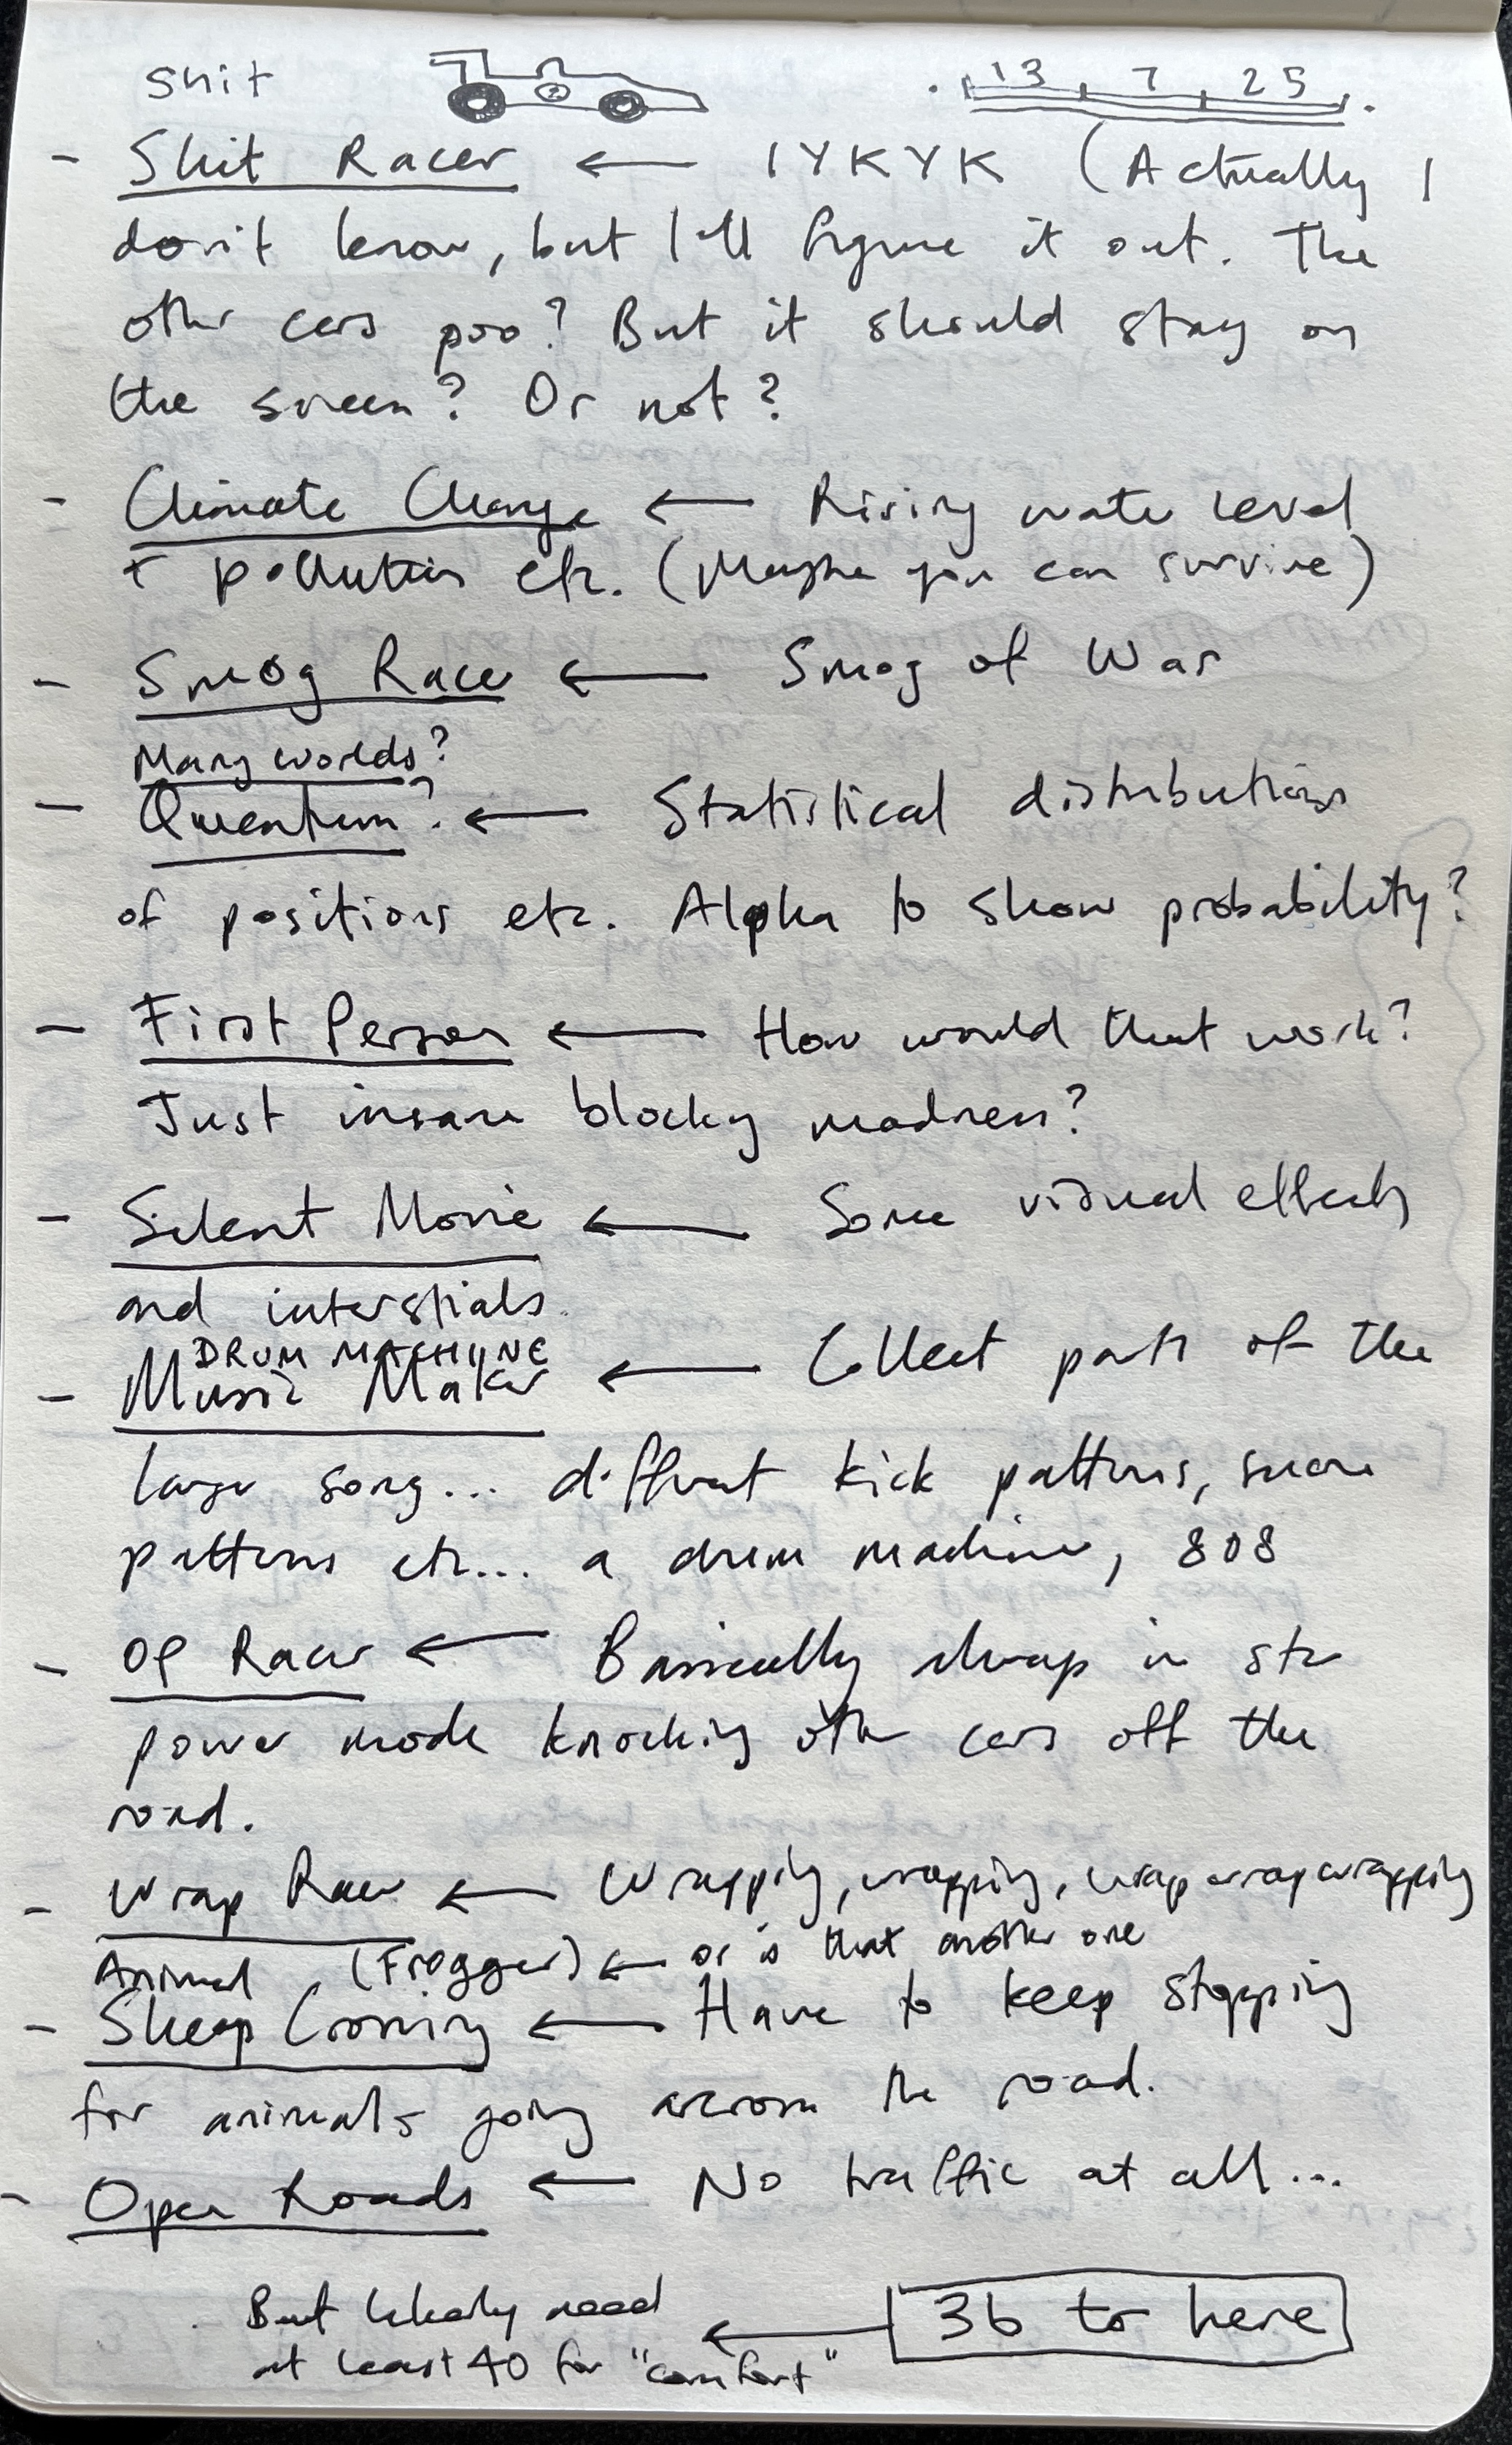 Shit
13 7 25
- Shit Racer ← IYKYK (Actually I
don't know, but I'll figure it out. The
other cars poo? But it should stay on
the screen? Or not?
- Climate Change ← Rising water level
+ pollution etc. (Maybe you can survive)
- Smog Racer ← Smog of War
Many worlds?
- Quantum? ← Statistical distributions
of positions etc. Alpha to show probability?
- First Person ← How would that work?
Just insane blocky madness?
- Silent Movie ← Some visual effects
and interstials.
DRUM MACHINE
- Music Maker ← Collect parts of the
large song... different kick patterns, snare
patterns etc... a drum machine, 808
- OP Racer ← Basically always in
power mode knocking other cars off the
road.
- Wrap Racer ← Wrapping, wrapping, wrap wrap wrapping
Animal (Frogger) ← or is that another one
- Sheep Crossing ← Have to keep stopping
for animals going across the road.
- Open Roads ← No traffic at all...
But likely need ← 36 to here
at least 40 for "comfort"